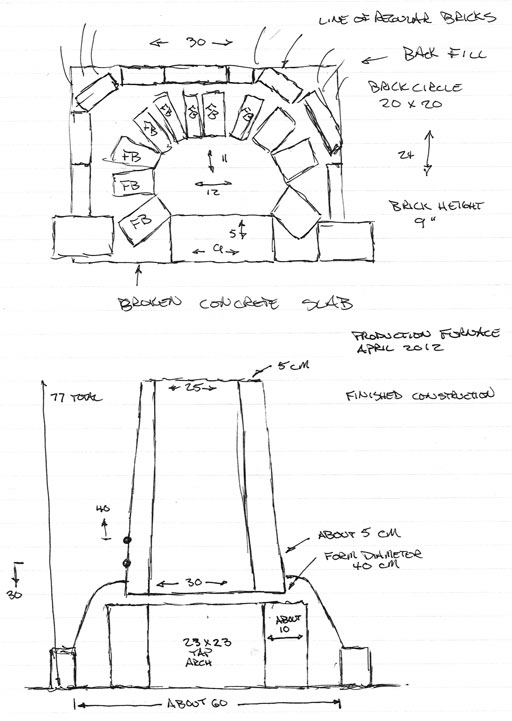 LINE OF REGULAR BRICKS
30
BACK FILL
BRICK CIRCLE
20 x 20
FB
FB
FB
FB
FB
24
FB
11
FB
12
BRICK HEIGHT
9"
FB
5
9
BROKEN CONCRETE SLAB
PRODUCTION FURNACE
APRIL 2012
5 CM
25
77 TOTAL
FINISHED CONSTRUCTION
40
ABOUT 5 CM
FORM DIAMETER
40 CM
30
30
23 x 23
TAP
ARCH
ABOUT
10
ABOUT 60